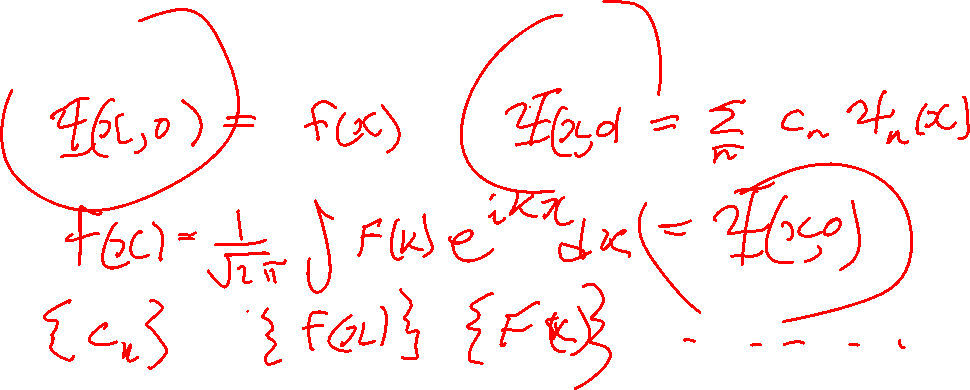 Ψ(x,0) = f(x)   Ψ(x,0) = Σ_n c_n ψ_n(x)
f(x) = 1/√(2π) ∫ F(k) e^{ikx} dx (= Ψ(x,0)
{c_n}   {f(x)}   {F(k)}   - - - - .